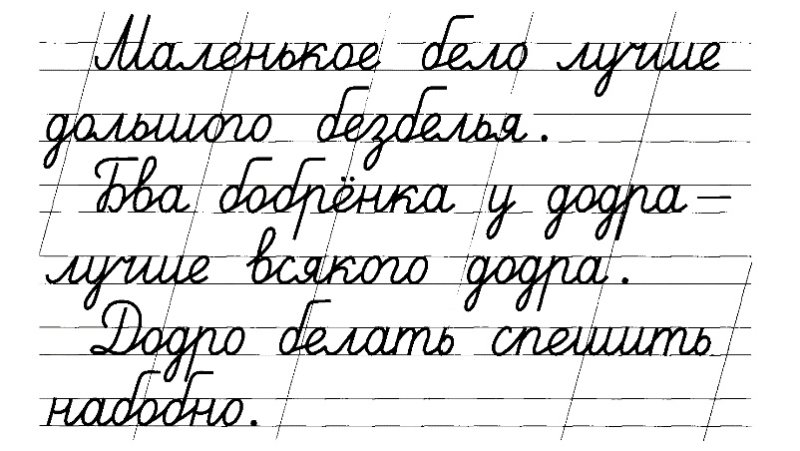 Маленькое бело лучше
дольшого безбелья.
Бва бобрёнка у додра —
лучше всякого додра.
Додро белать спешить
набобно.